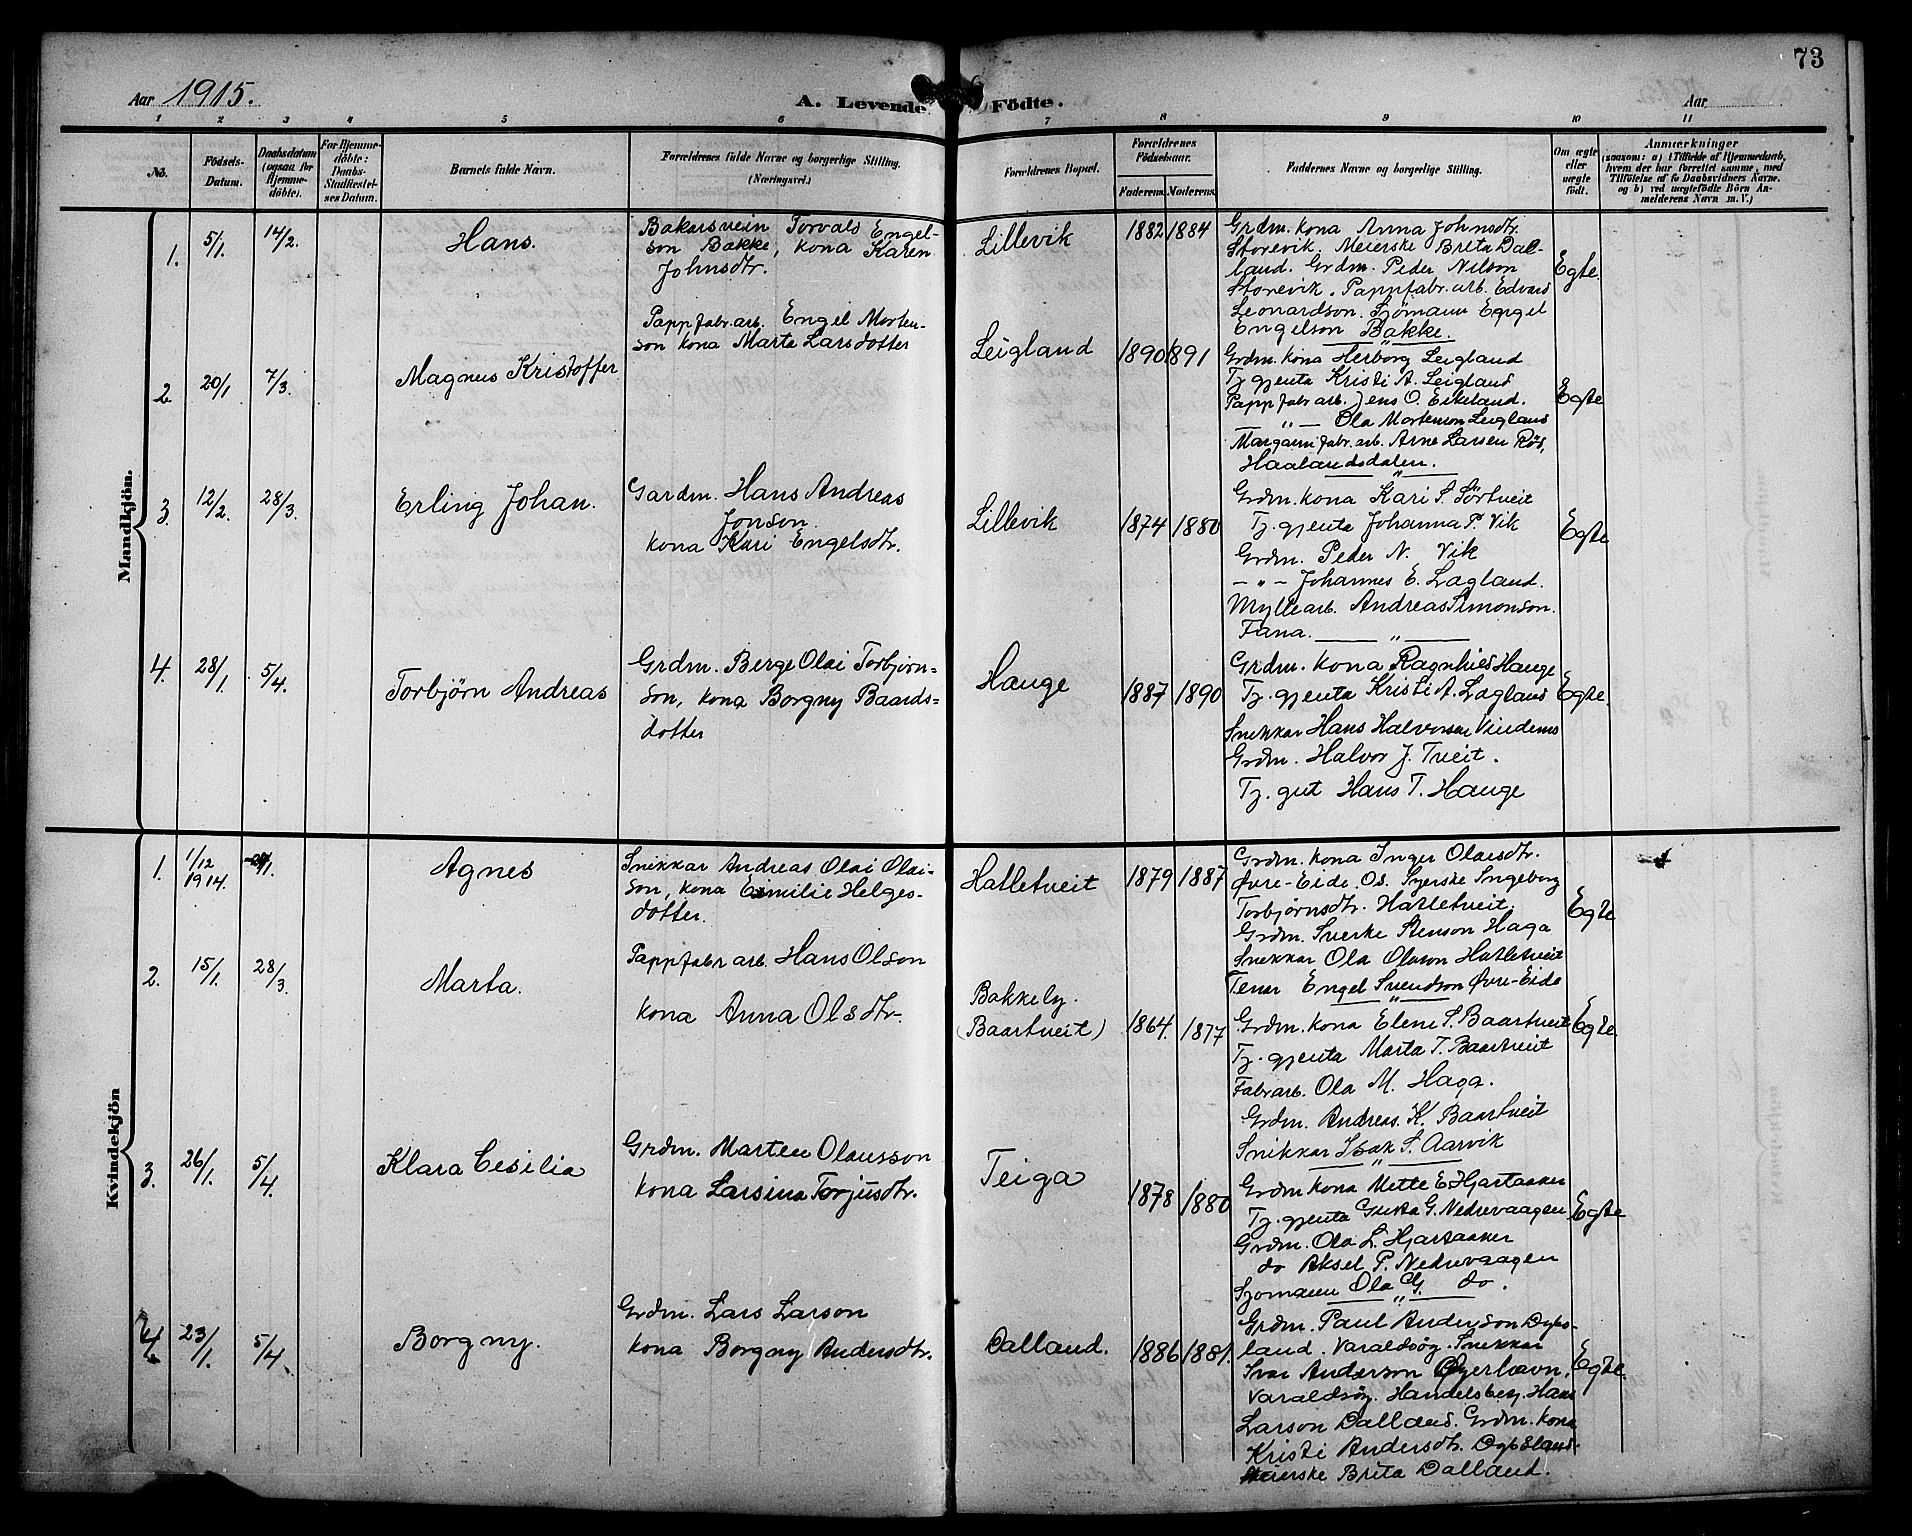 73
Aar 1915.
A. Levende Födte.
Aar
1 2 3 4 5 6 7 8 9 10 11
No.
Födsels-
Datum.
Daabsdatum
(ogsaa for
Hjemme-
döbte).
For Hjemme-
döbte:
Daabs-
Stadfæstel-
ses Datum.
Barnets fulde Navn.
Forældrenes fulde Navne og borgerlige Stilling.
(Næringsvei.)
Forældrenes Bopæl.
Forældrenes
Födselsaar.
Faderens. Moderens.
Faddernes Navne og borgerlige Stilling.
Om ægte
eller
uægte
født.
Anmærkninger
(saasom: a) i Tilfælde af Hjemmedaab,
hvem der har forrettet samme, med
Tilföielse af to Daabsvidners Navne.
og b) ved uægtefödte Börn An-
melderens Navn m. V.)
Mandkjön.
1. 5/1. 14/2. Hans.
Bakarsvein Torvald Engel-
son Bakke, kona Karen
Johnsdtr.
Lillevik 1882 1884
Grdm. kona Anna Johnsdtr.
Storevik. Meierske Brita Dal-
land. Grdm. Peder Nilson
Storevik. Pappfabr. arb. Edvard
Leonardson. Sjömann Engel
Engelson Bakke.
Egte.
2. 20/1. 7/3. Magnus Kristoffer
Pappfabr. arb. Engel Morten-
son kona Marta Larsdotter
Leigland 1890 1891
Grdm. kona Herborg Leigland
Tj. gjenta Kristi A. Leigland
Pappfabr arb. Jens O. Eikeland.
— „ — Ola Mortenson Leigland
Margarinfabr. arb. Arne Larsen Röd,
Haalandsdalen.
Egte
3. 12/2. 28/3. Erling Johan.
Gardm. Hans Andreas
Jonson.
kona Kari Engelsdtr.
Lillevik 1874 1880
Grdm. kona Kari S. Sörtveit
Tj. gjenta Johanna P. Vik
Grdm. Peder N. Vik
— „ — Johannes E. Lagland.
Myllearb. Andreas Simonson.
Fana.
Egte
4. 28/1. 5/4. Torbjørn Andreas
Grdm. Berge Olai Torbjørn-
son, kona Borgny Baards-
dotter
Hauge 1887 1890
Grdm. kona Ragnhild Hauge
Tj. gjenta Kristi A. Lagland
Snekkar Hans Halvorsen Vindenes
Grdm. Halvor J. Tveit.
Tj. gut Hans T. Hauge
Egte.
Kvindekjön
1. 1/12 1914. Agnes
Snikkar Andreas Olai Olai-
son, kona Emilie Helges-
dotter.
Hatletveit 1879 1887
Grdm. kona Inger Olaisdtr.
Øvre-Eide. Os. Syerske Ingeborg
Torbjørnsdtr. Hatletveit.
Grdm. Sverke Stenson Haga
Snekkar Ola Olason Hatletveit
Tenar Engel Svendson Øvre-Eide
Egte
2. 15/1. 28/3. Marta.
Pappfabr arb. Hans Olson
kona Anna Olsdtr.
Bakkely.
(Baartveit) 1864. 1877
Grdm. kona Elene S. Baartveit
Tj. gjenta Marta T. Baartveit
Fabrarb. Ola M. Haga.
Grdm. Andreas. K. Baartveit
Snikkar Isak S. Aarvik
Egte
3. 26/1. 5/4. Klara Cesilia
Grdm. Marten Olausson
kona Larsina Torjusdtr.
Teiga 1878 1880
Grdm kona Mette E Hjartaaker
Tj. gjenta Gusta G. Nedrevaagen
Grdm. Ola L. Hjartaaker
do Aksel P. Nedrevaagen
Sjomann Ola G. do.
Egte
4. 23/1. 5/4. Borgny.
Grdm. Lars Larson
kona Borgny Andersdtr.
Dalland. 1886 1881.
Grdm. Paul Anderson Dybs-
land. Varaldsøy. Snikkar
Ivar Anderson Øyerhavn,
Varaldsøy. Handelsbetj. Hans
Larson Dalland. Grdm. kona
Kristi Andersdtr. Dybsland.
Meierske Brita Dalland.
Egte.